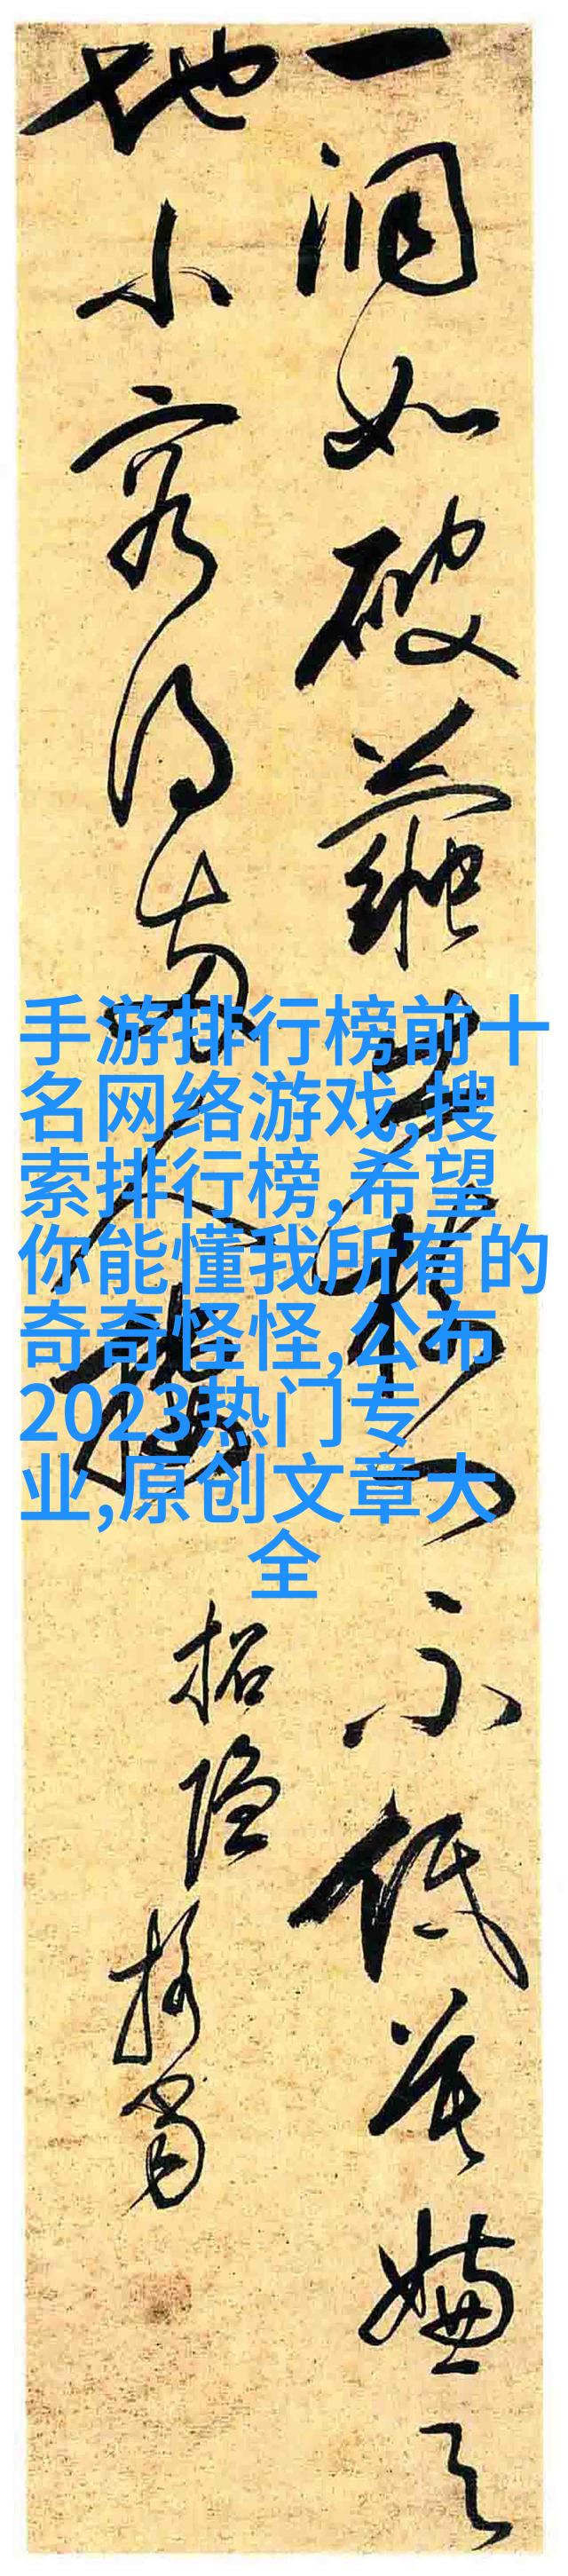 一洞如破繭不低莫嫌天
地小容得両人
招隐
手游排行榜前十
名网络游戏,搜
索排行榜,希望
你能懂我所有的
奇奇怪怪,公布
2023热门专
业,原创文章大
全